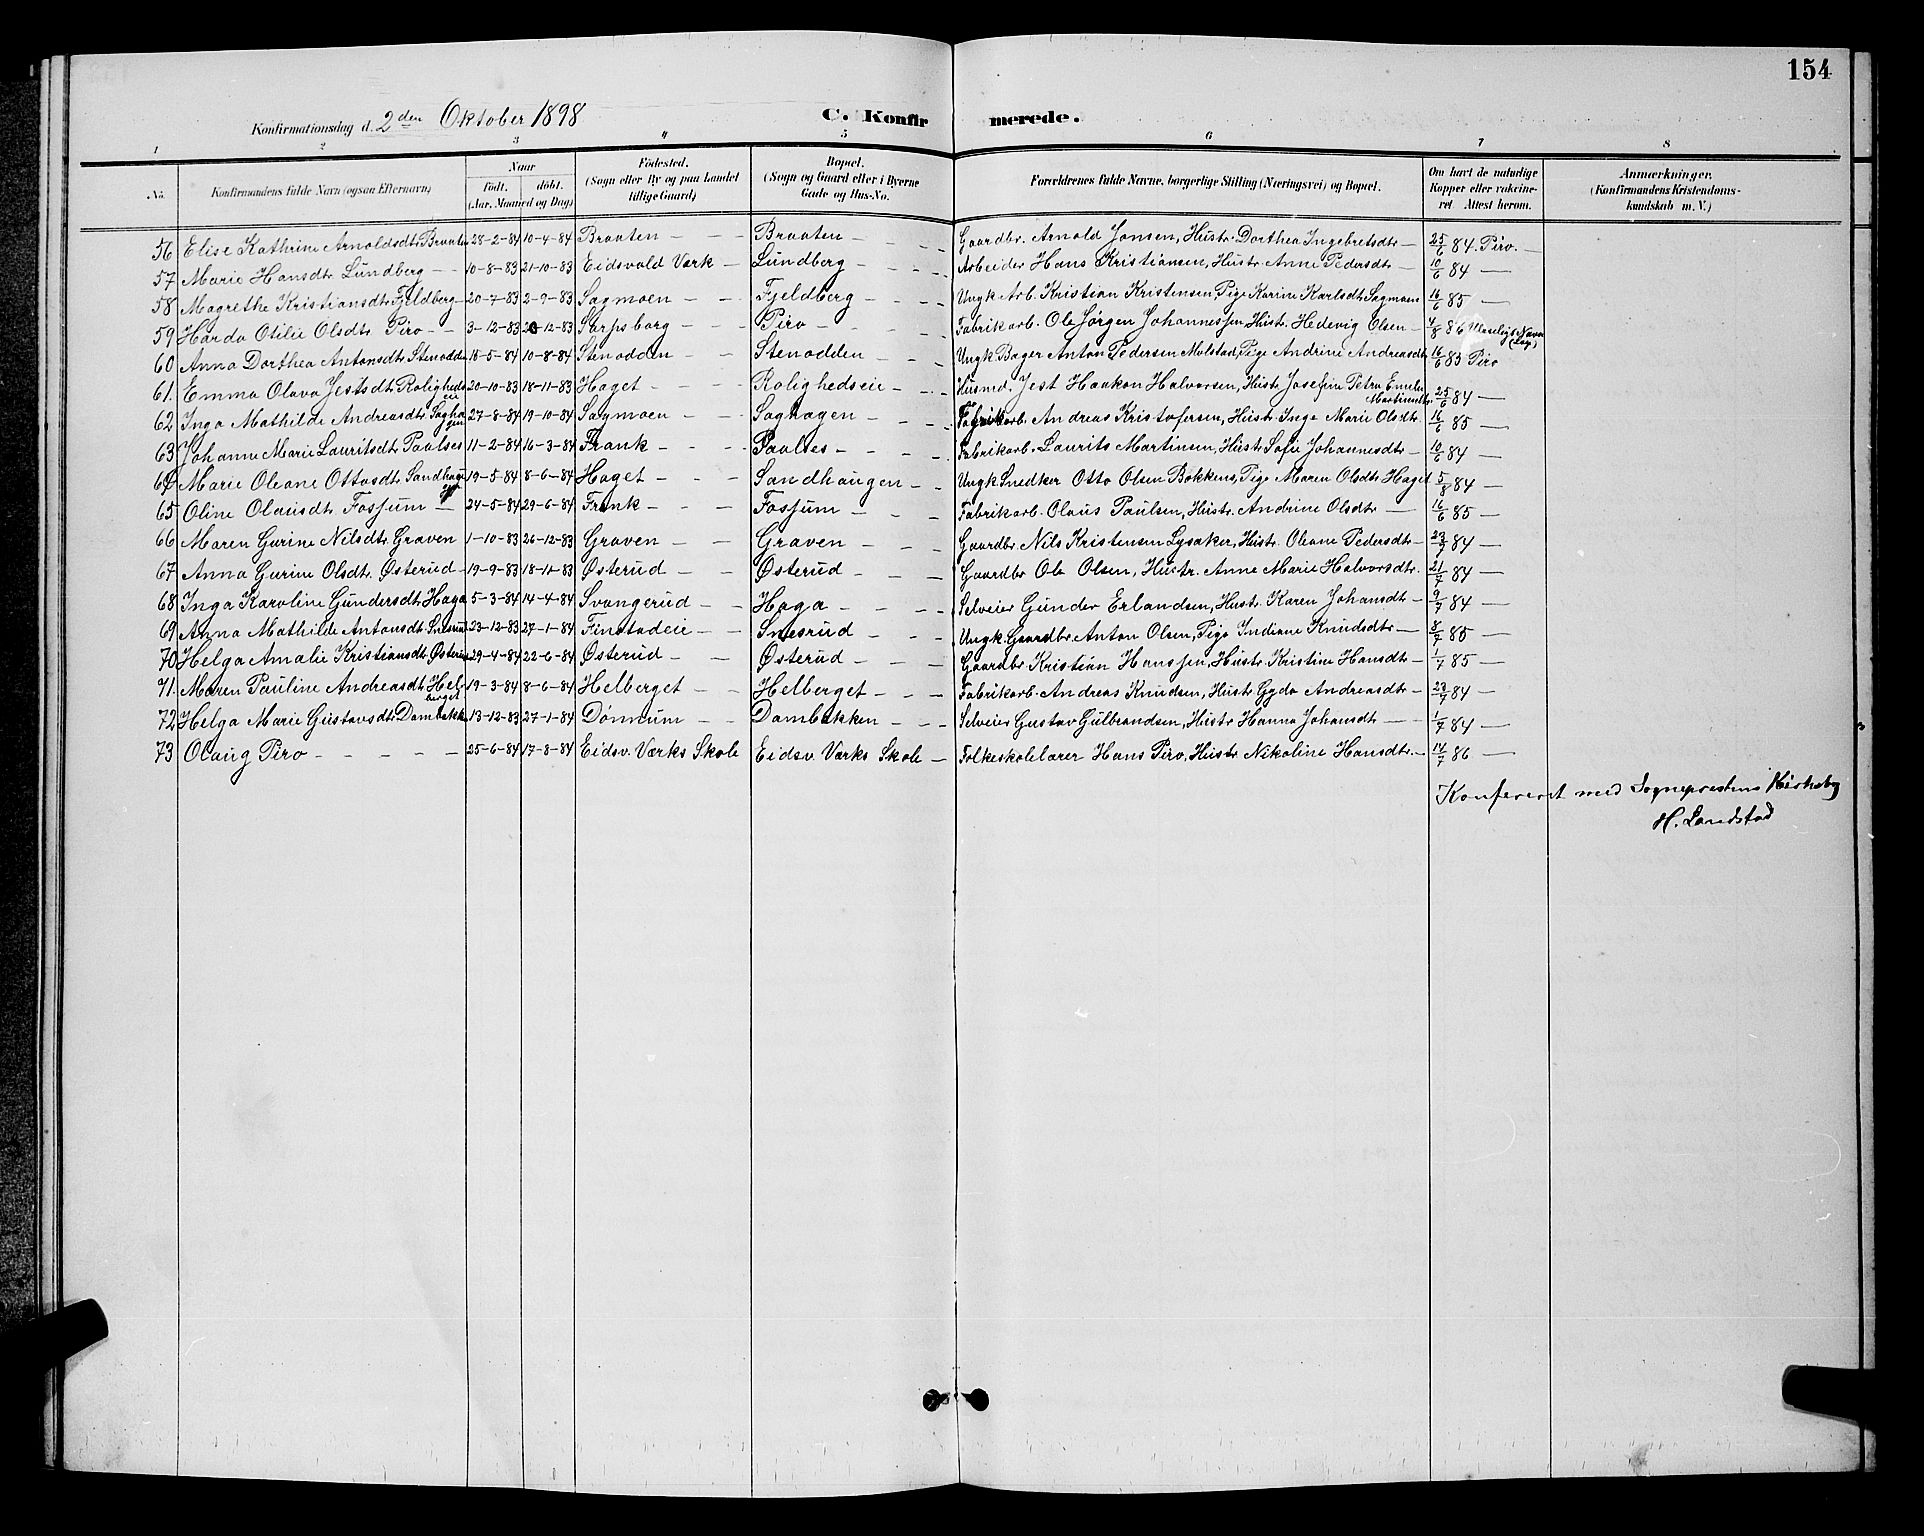 154
Konfirmationsdag d. 2den Oktober 1898 C. Konfir merede.
1 2 3 4 5 6 7 8
No. Konfirmandens fulde Navn (ogsaa Efternavn) Naar Født. døbt. (Aar, Maaned og Dag) Fødested. (Sogn eller By og paa Landet tillige Gaard) Bopæl. (Sogn og Gaard eller i Byerne Gade og Hus-No. Forældrenes fulde Navne, borgerlige Stilling (Næringsvei) og Bopæl. Om havt de naturlige Kopper eller vaccineret Attest herom. Anmærkninger. (Konfirmandens Kristendomskundskab m. V.)
56 Elise Kathrine Arnoldsdtr. Braaten 28-2-84 10-4-84 Braaten Braaten Gaardbr. Arnold Jonsen, Hustr. Dorthea Ingebretsdtr 25/6 84. Piro.
57 Marie Hansdtr. Lundberg 10-8-83 21-10-83 Eidsvold Værk Lundberg Arbeider Hans Kristiansen, Hustr. Anne Pedersdtr 10/6 84
58 Magrethe Kristiansdtr. Fjeldberg 20-7-83 2-9-83 Sagmoen Fjeldberg Ungk. Arb. Kristian Kristensen, Pige Karine Karlsdtr. Sagmoen 16/6 85
59 Harda Otilie Olsdtr. Piro 3-12-83 26-12-83 Sarpsborg Piro Fabrikarb. Ole Jørgen Johannessen, Hustr. Hedevig Olsen 4/8 86 Navn
60 Anna Dorthea Antonsdtr. Stenodden 18-5-84 10-8-84 Stenodden Stenodden Ungk. Bager Anton Pedersen Molstad, Pige Andrine Andreasdtr 16/6 85 Piro
61. Emma Olava Jestsdtr. Rolighedseie 20-10-83 18-11-83 Haget Rolighedseie Husmd. Jest Haakon Halvorsen, Hustr. Josefine Petra Emelie Martinsdtr. 25/6 84
62 Inga Mathilde Andreasdtr. Saghagen 27-8-84 19-10-84 Sagmoen Saghagen Fabrikarb. Andreas Kristofersen, Hustr. Inge Marie Olsdtr. 16/6 85
63 Johanne Marie Lauritsdtr. Paalses 11-2-84 16-3-84 Frank Paalses Fabrikarb. Laurits Martinsen, Hustr. Sofie Johannesdtr 10/6 84
64 Marie Oleane Ottosdtr. Sandhaugen 19-5-84 8-6-84 Haget Sandhaugen Ungk. Snedker Otto Olsen Bekkens, Pige Maren Olsdtr. Haget 5/8 84
65 Oline Olausdtr. Fossum 24-5-84 29-6-84 Frank Fossum Fabrikarb. Olaus Paulsen, Hustr. Andrine Olsdtr 16/6 85
66 Maren Gurine Nilsdtr. Graven 1-10-83 26-12-83 Graven Graven Gaardbr. Nils Kristensen Lysaker, Hustr. Oleane Pedersdtr 23/7 84
67 Anna Gurine Olsdtr. Østerud 19-9-83 18-11-83 Østerud Østerud Gaardbr Ole Olsen, Hustr. Anne Marie Halvorsdtr. 21/7 84
68 Inga Karoline Gundersdtr. Haga 5-3-84 14-4-84 Svangerud Haga Selveier Gunder Erlandsen, Hustr. Karen Johansdtr 9/7 84
69 Anna Mathilde Antonsdtr. Snesrud 23-12-83 27-1-84 Finstadeie Snesrud Ungk. Gaardbr. Anton Olsen, Pige Indiane Knudsdtr 8/7 85
70 Helga Amalie Kristiansdtr. Østerud 29-4-84 22-6-84 Østerud Østerud Gaardbr. Kristian Hanssen, Hustr. Kristine Hansdtr 1/7 85
71. Maren Pauline Andreasdtr. Helberget 19-3-84 8-6-84 Helberget Helberget Fabrikarb. Andreas Knudsen, Hustr. Gyda Andreasdtr 23/7 84
72 Helga Marie Gustavsdtr. Dambakken 13-12-83 27-1-84 Dønnum Dambakken Selveier Gustav Gulbrandsen, Hustr. Hanna Johansdtr 1/7 84
73 Olaug Piro 25-6-84 17-8-84 Eidsv. Værks Skole Eidsv. Værks Skole Folkeskolelærer Hans Piro, Hustr. Nikoline Hansdtr. 14/7 86
Konfereret med Sogneprestens Kirkebog
H. Landstad